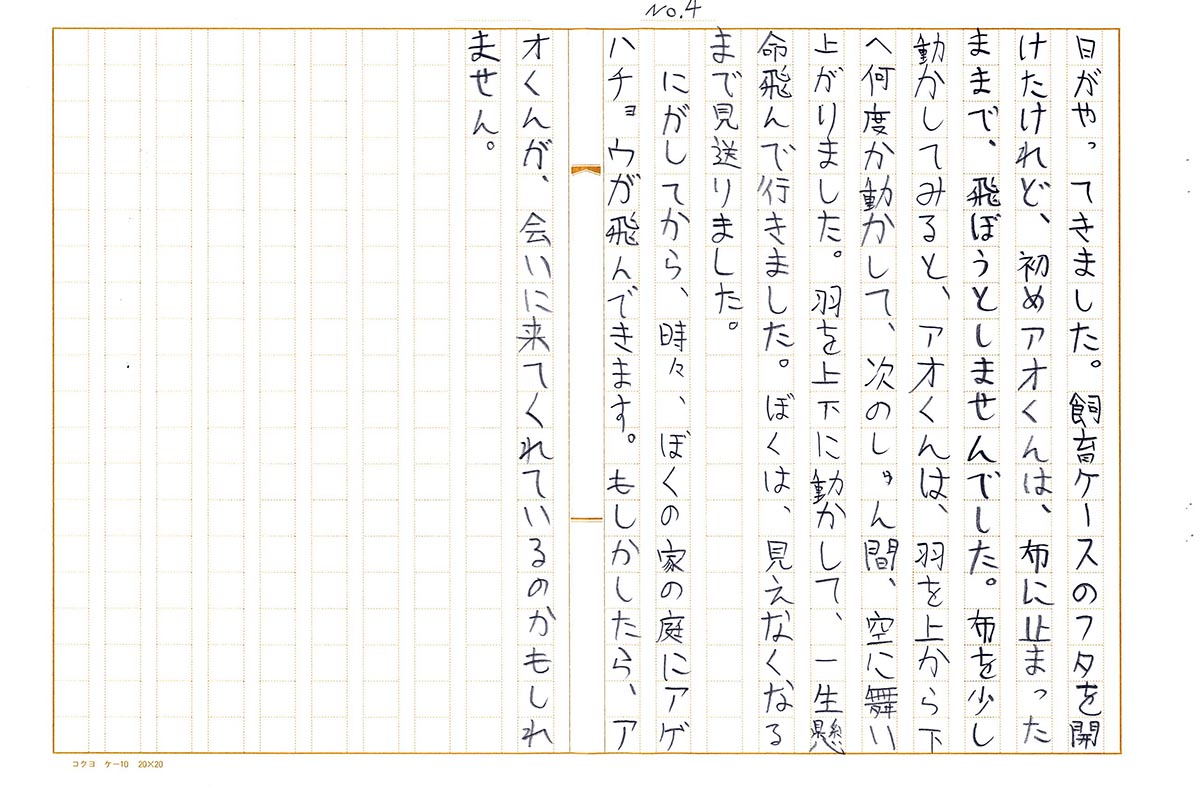 No.4
日がやってきました。飼育ケースのフタを開
けたけれど、初めアオくんは、布に止まった
ままで、飛ぼうとしませんでした。布を少し
動かしてみると、アオくんは、羽を上から下
へ何度か動かして、次のしゅん間、空に舞い
上がりました。羽を上下に動かして、一生懸
命飛んで行きました。ぼくは、見えなくなる
まで見送りました。
にがしてから、時々、ぼくの家の庭にアゲ
ハチョウが飛んできます。もしかしたら、ア
オくんが、会いに来てくれているのかもしれ
ません。
コクヨ ケー10 20×20